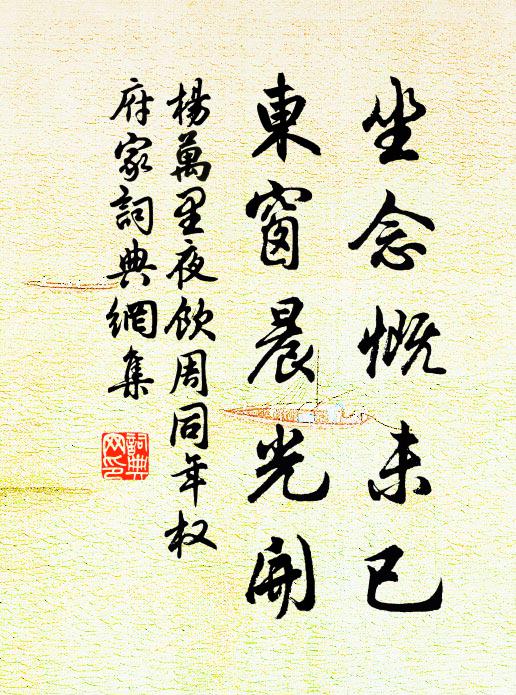 坐念慨未已
東窗晨光開
楊萬里夜飲周同年权
府家詞典網集
詞典
网印